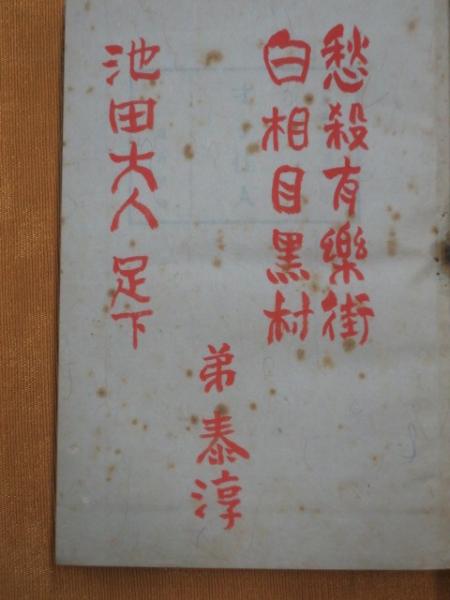 愁殺有樂街
白相目黒村
弟 泰淳
池田大人 足下